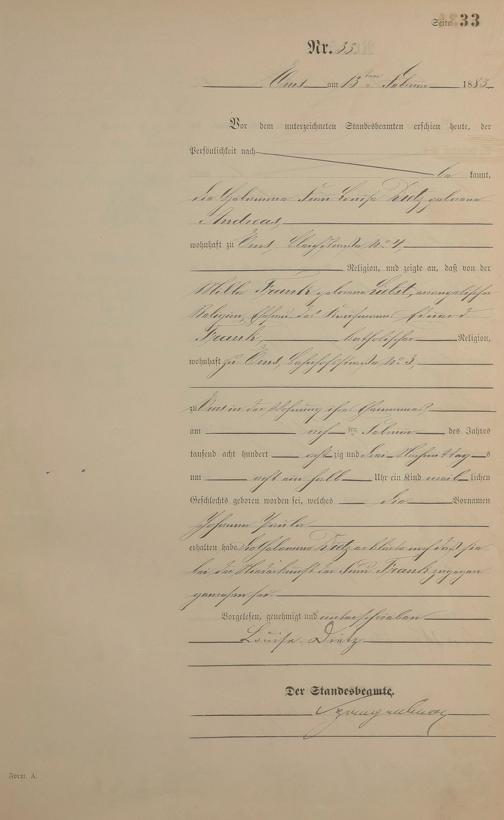 Seite 33
Nr. 33
Ems am 13ten Februar 1883
Vor dem unterzeichneten Standesbeamten erschien heute, der
Persönlichkeit nach
be kannt,
die Hebamme Frau Louise Dietz geborene
Andreas,
wohnhaft zu Ems, No 4,
Religion, und zeigte an, daß von der
Frank, geborene evangelischer
Religion, Ehefrau des Kaufmanns Eduard
Frank, katholischer Religion,
wohnhaft zu Ems, Bahnhofstraße No 3,
zu Ems in der Wohnung ihres Ehemannes
am ten Februar des Jahres
tausend acht hundert achtzig und drei Nachmittags
um acht ein halb Uhr ein Kind weiblichen
Geschlechts geboren worden sei, welches die Vornamen
Johanna Paula
erhalten habe. Dietz erklärte noch daß sie
bei der Niederkunft der Frau Frank zugegen
gewesen sei.
Vorgelesen, genehmigt und unterschrieben
Louise Dietz
Der Standesbeamte.
Form. A.